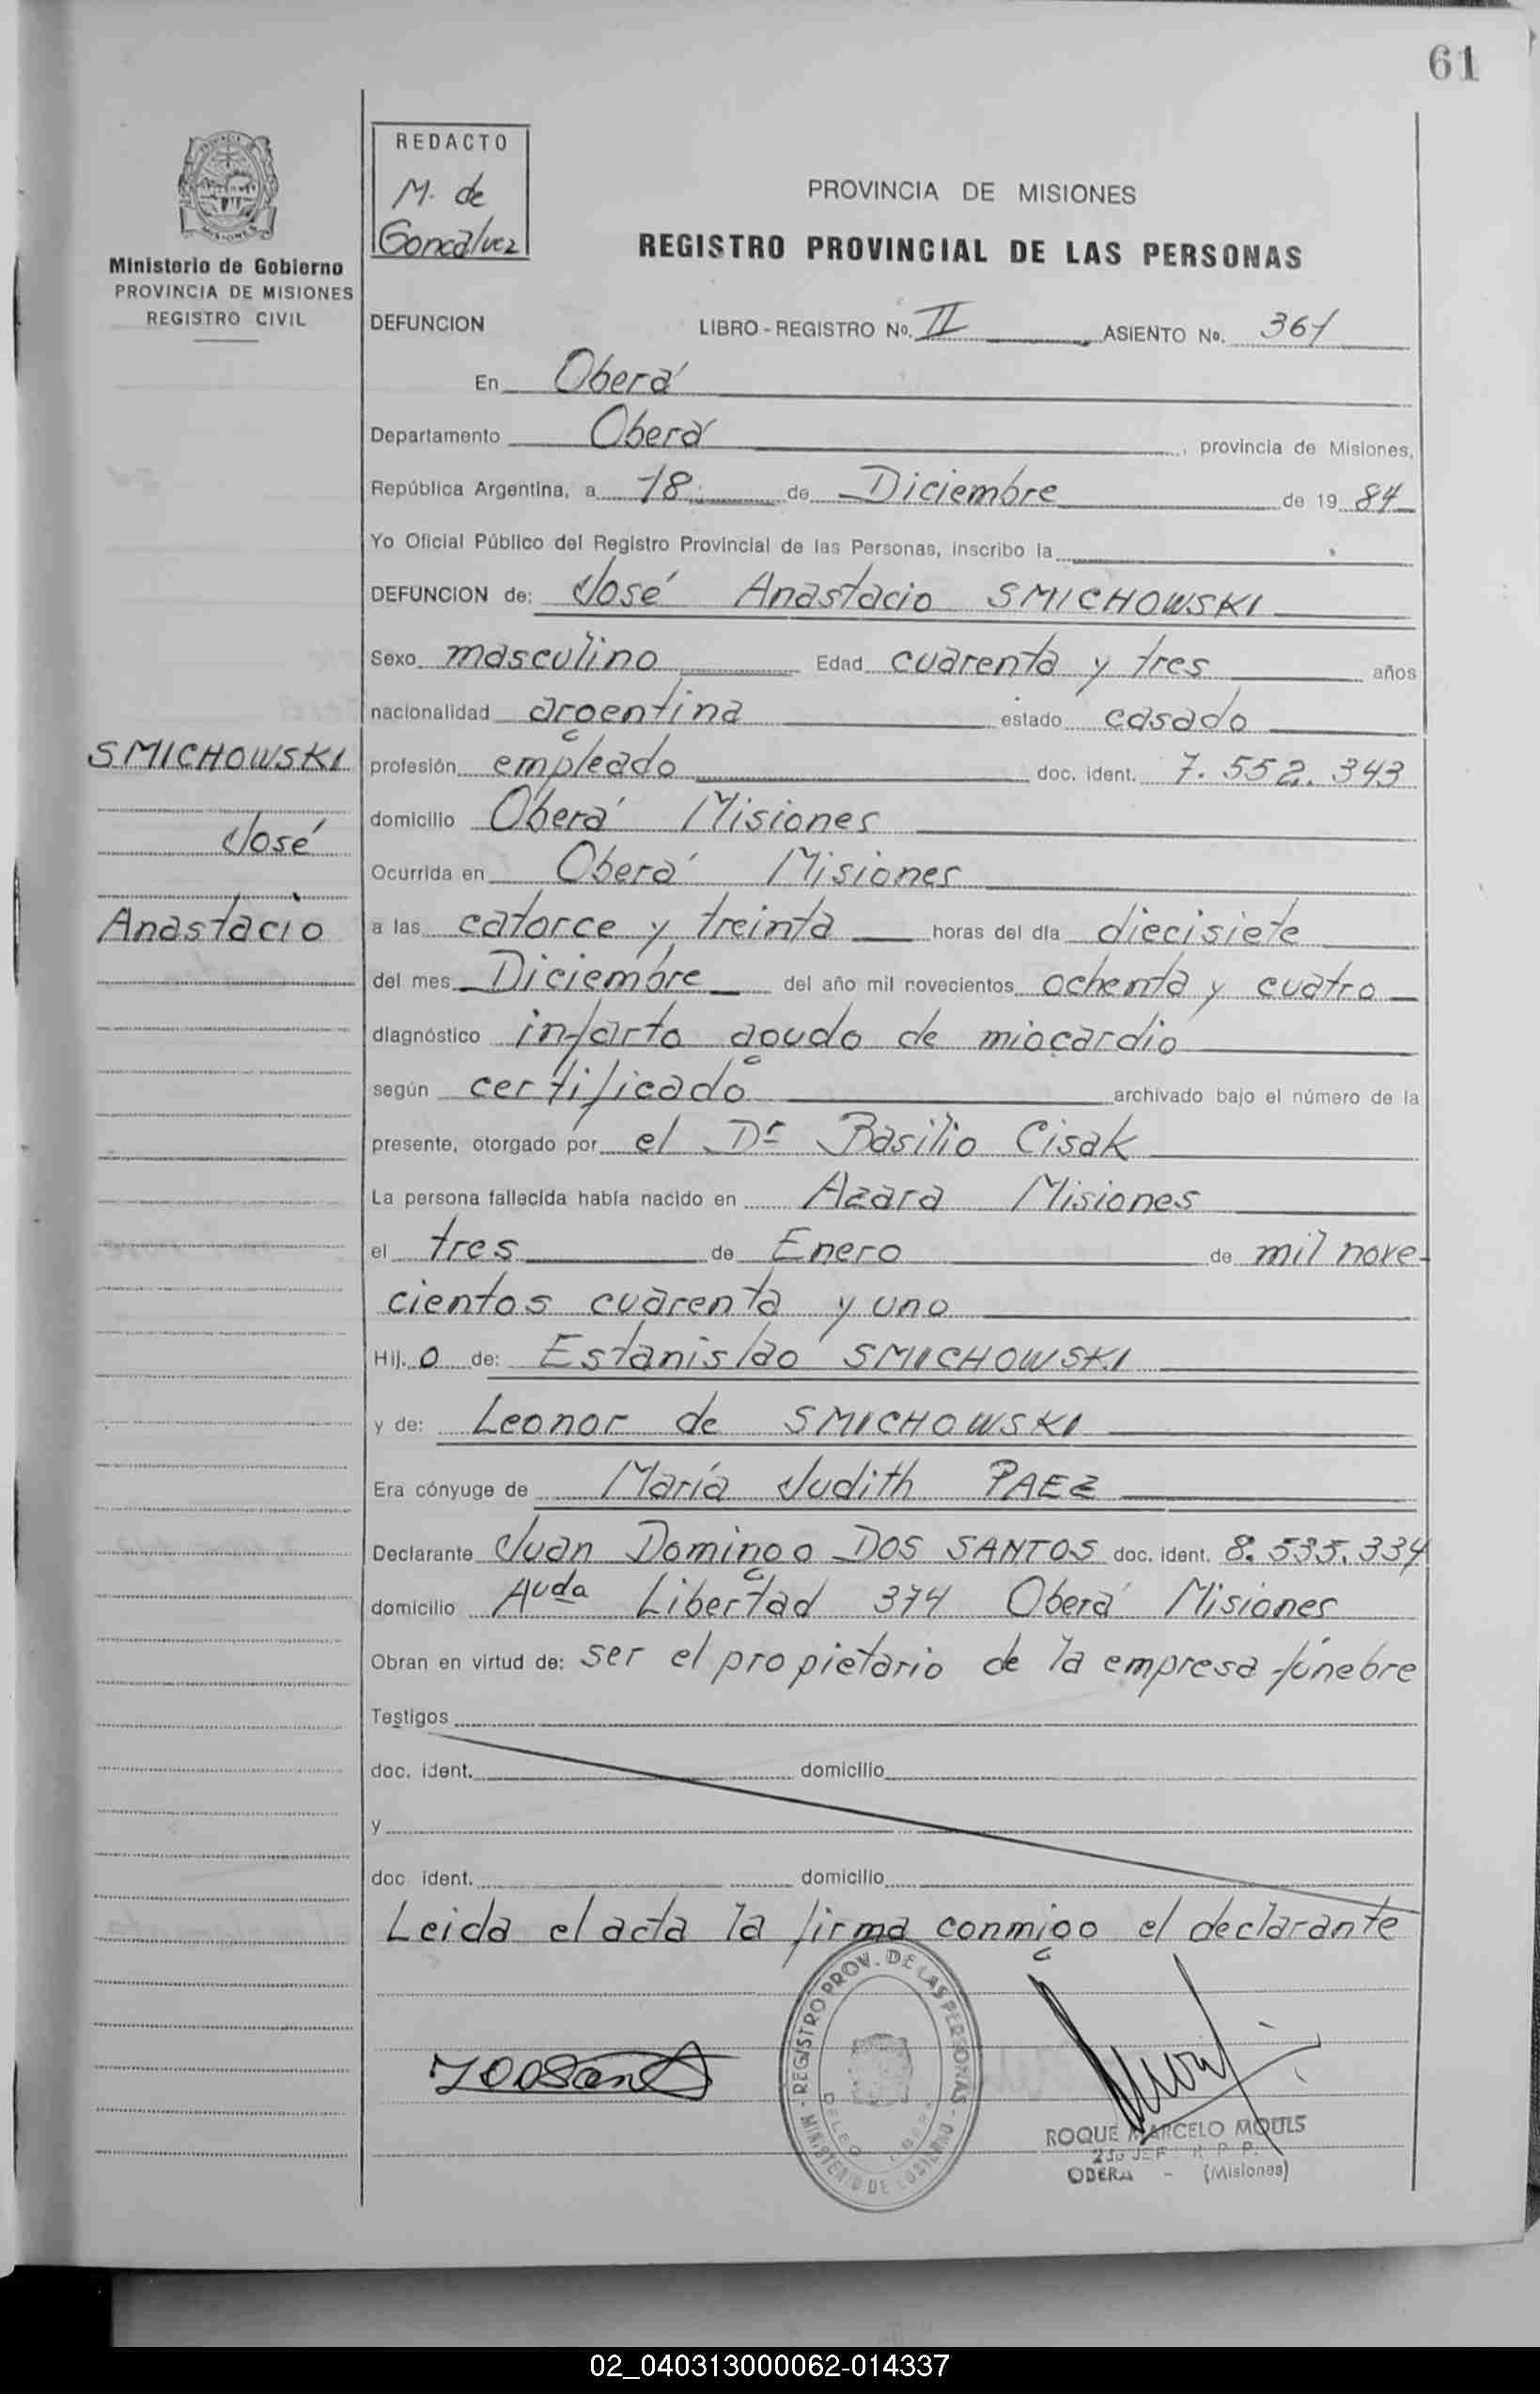 61
REDACTO
M. de
Goncalvez
PROVINCIA DE MISIONES
REGISTRO PROVINCIAL DE LAS PERSONAS
Ministerio de Gobierno
PROVINCIA DE MISIONES
REGISTRO CIVIL
DEFUNCION LIBRO - REGISTRO No. II ASIENTO No. 361
En Oberá
Departamento Oberá, provincia de Misiones,
República Argentina, a 18 de Diciembre de 19 84
Yo Oficial Público del Registro Provincial de las Personas, inscribo la
DEFUNCION de: José Anastacio SMICHOWSKI
Sexo masculino Edad cuarenta y tres años
nacionalidad argentina estado casado
SMICHOWSKI
José
Anastacio
profesión empleado doc. ident. 7.552.343
domicilio Oberá Misiones
Ocurrida en Oberá Misiones
a las catorce y treinta horas del día diecisiete
del mes Diciembre del año mil novecientos ochenta y cuatro
diagnóstico infarto agudo de miocardio
según certificado archivado bajo el número de la
presente, otorgado por el Dr Basilio Cisak
La persona fallecida había nacido en Azara Misiones
el tres de Enero de mil nove-
cientos cuarenta y uno
Hij. o de: Estanislao SMICHOWSKI
y de: Leonor de SMICHOWSKI
Era cónyuge de María Judith PAEZ
Declarante Juan Domingo DOS SANTOS doc. ident. 8.535.334
domicilio Avda Libertad 374 Oberá Misiones
Obran en virtud de: ser el propietario de la empresa fúnebre
Testigos
doc. ident. domicilio
y
doc. ident. domicilio
Leida el acta la firma conmigo el declarante
REGISTRO PROV. DE LAS PERSONAS
MINISTERIO DE GOBIERNO
ROQUE MARCELO MOULS
2do JEF R. P. P.
OBERA - (Misiones)
02_040313000062-014337